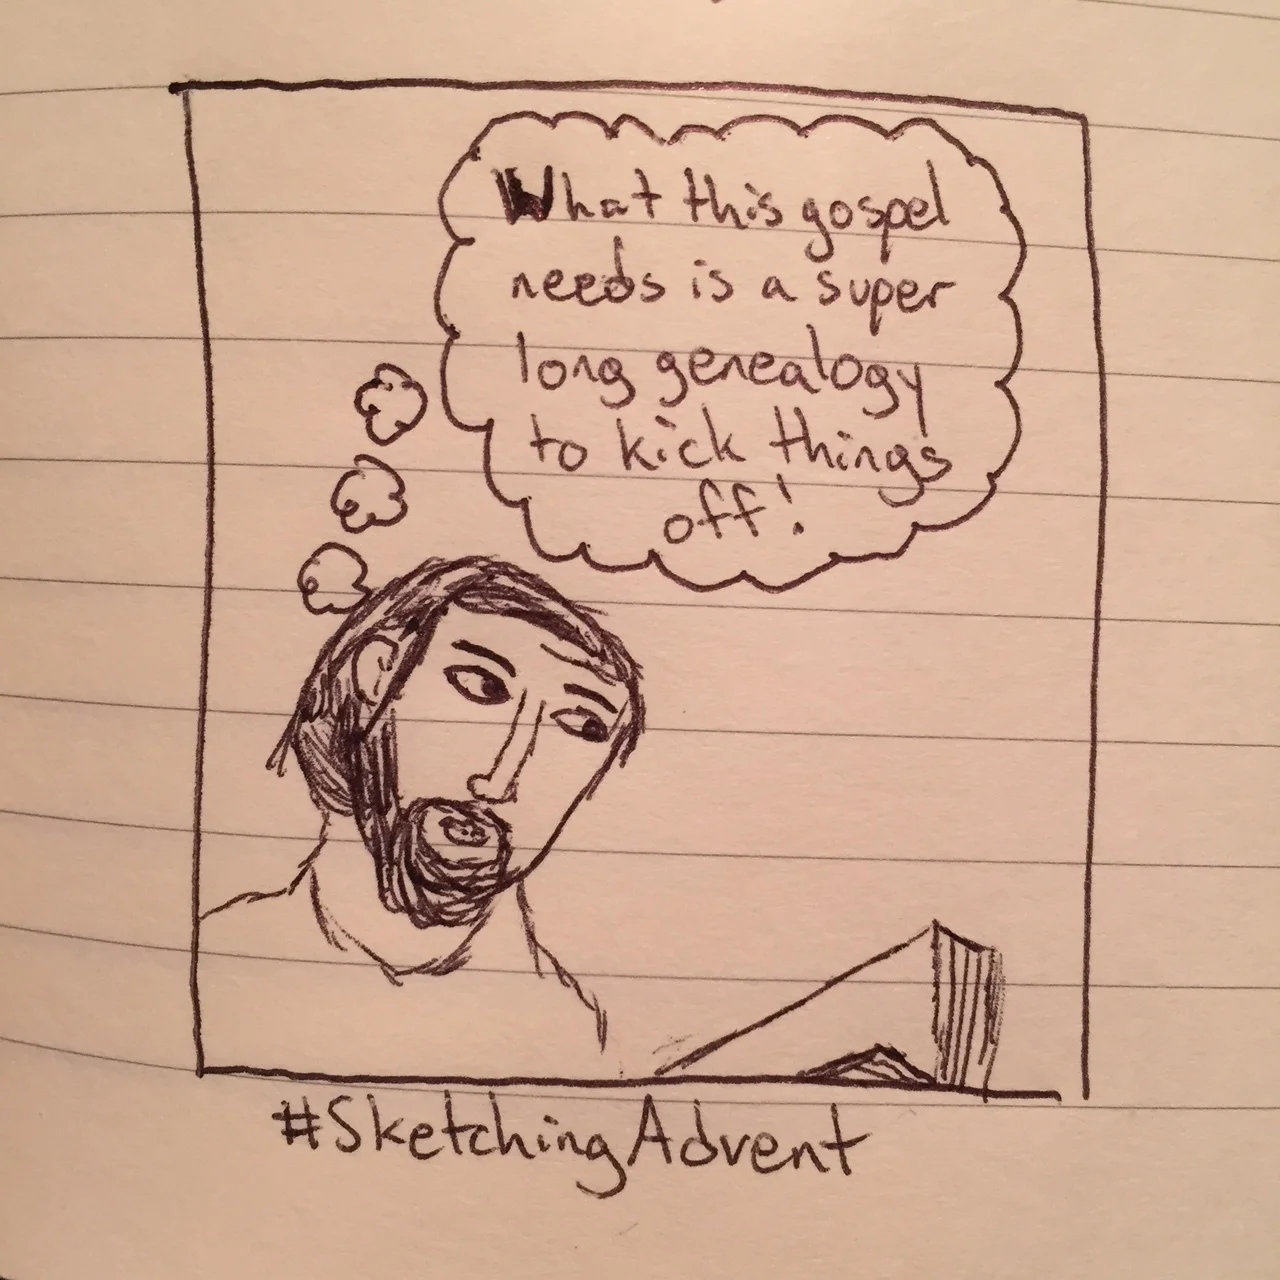 What this gospel
needs is a super
long genealogy
to kick things
off!
#SketchingAdvent